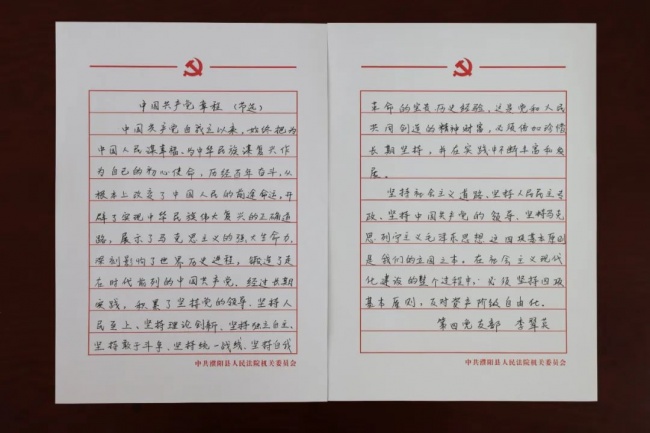 中国共产党章程（节选）
中国共产党自成立以来，始终把为
中国人民谋幸福、为中华民族谋复兴作
为自己的初心使命，历经百年奋斗，从
根本上改变了中国人民的前途命运，开
辟了实现中华民族伟大复兴的正确道
路，展示了马克思主义的强大生命力，
深刻影响了世界历史进程，锻造了走
在时代前列的中国共产党。经过长期
实践，积累了坚持党的领导、坚持人
民至上、坚持理论创新、坚持独立自主、
坚持敢于斗争、坚持统一战线、坚持自我
中共濮阳县人民法院机关委员会
革命的宝贵历史经验，这是党和人民
共同创造的精神财富，必须倍加珍惜
长期坚持，并在实践中不断丰富和发
展。
坚持社会主义道路、坚持人民民主专
政、坚持中国共产党的领导、坚持马克
思列宁主义毛泽东思想这四项基本原则
是我们的立国之本。在社会主义现代
化建设的整个过程中，必须坚持四项
基本原则，反对资产阶级自由化。
第四党支部 李翠英
中共濮阳县人民法院机关委员会